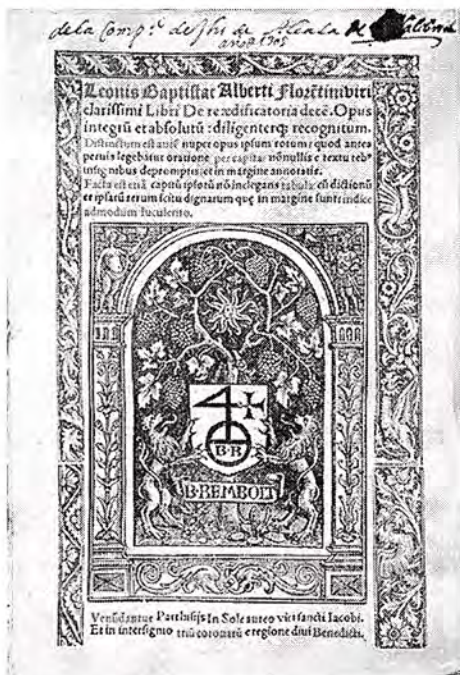 dela Comp.ª de Jhs de Alcala
año 1705
Leonis Baptistae Alberti Florẽtini viri
clarissimi Libri De re ædificatoria decẽ. Opus
integrũ et absolutũ : diligenterq; recognitum.
Distinctum est autẽ nuper opus ipsum totum : quod antea
legebatur oratione per capita : nõnullis e textu reb⁹
insignibus depromptis : et in margine annotatis.
Facta est etiã capitũ ipsorũ nõ inelegans tabula cũ dictionũ
et ipsarũ rerum scitu dignarum quę in margine sunt : indice
admodum luculento.
B·R
B·REMBOLT
Venũdantur Parrhisijs In Sole aureo vici sancti Iacobi.
Et in intersignio triũ coronarũ e regione diui Benedicti.